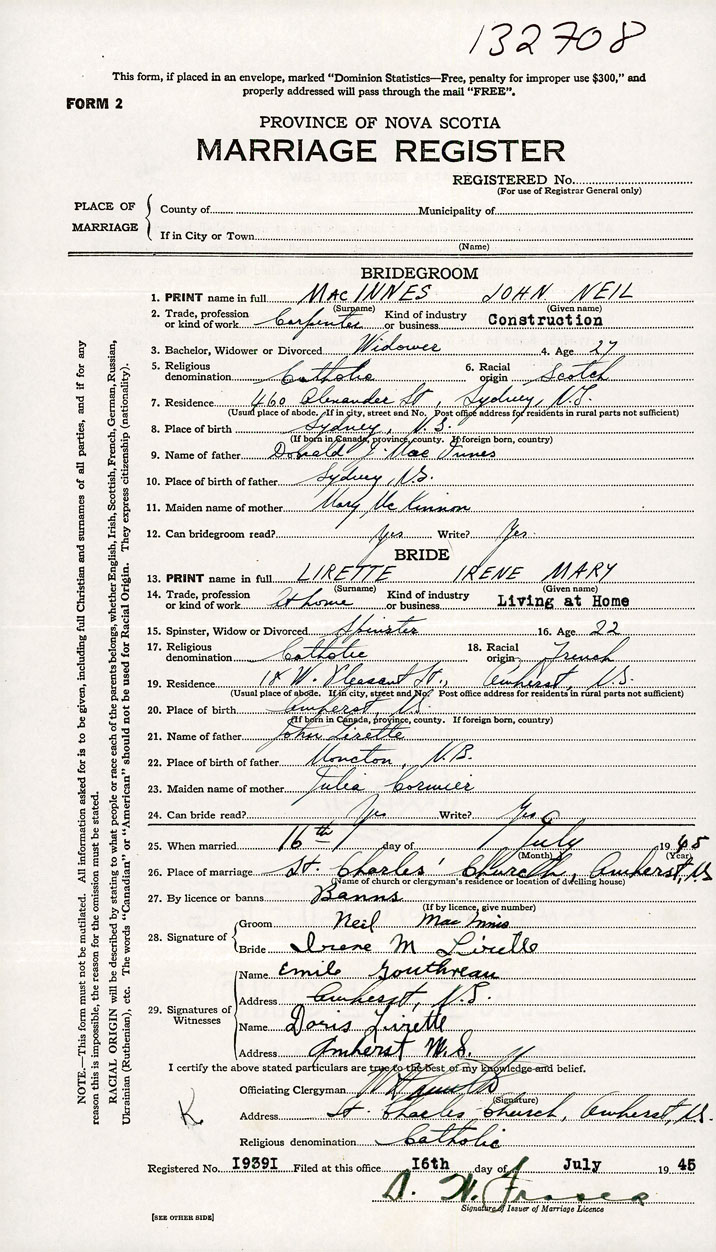 132708
This form, if placed in an envelope, marked "Dominion Statistics—Free, penalty for improper use $300," and
properly addressed will pass through the mail "FREE".
FORM 2
PROVINCE OF NOVA SCOTIA
MARRIAGE REGISTER
REGISTERED No.
(For use of Registrar General only)
PLACE OF MARRIAGE
County of Municipality of
If in City or Town
(Name)
BRIDEGROOM
1. PRINT name in full MACINNES JOHN NEIL
(Surname) (Given name)
2. Trade, profession or kind of work Carpenter Kind of industry or business Construction
3. Bachelor, Widower or Divorced Widower 4. Age 27
5. Religious denomination Catholic 6. Racial origin Scotch
7. Residence 460 Alexander St, Sydney, N.S.
(Usual place of abode. If in city, street and No. Post office address for residents in rural parts not sufficient)
8. Place of birth Sydney, N.S.
(If born in Canada, province, county. If foreign born, country)
9. Name of father Donald J. MacInnes
10. Place of birth of father Sydney, N.S.
11. Maiden name of mother Mary McKinnon
12. Can bridegroom read? Yes Write? Yes.
BRIDE
13. PRINT name in full LIRETTE IRENE MARY
(Surname) (Given name)
14. Trade, profession or kind of work At home Kind of industry or business Living at Home
15. Spinster, Widow or Divorced Spinster 16. Age 22
17. Religious denomination Catholic 18. Racial origin French
19. Residence 18 W. Pleasant St., Amherst, N.S.
(Usual place of abode. If in city, street and No. Post office address for residents in rural parts not sufficient)
20. Place of birth Amherst N.S.
(If born in Canada, province, county. If foreign born, country)
21. Name of father John Lirette
22. Place of birth of father Moncton, N.B.
23. Maiden name of mother Julia Cormier
24. Can bride read? Yes Write? Yes
25. When married 16th day of July 1945
(Month) (Year)
26. Place of marriage St. Charles' Church, Amherst, N.S
(Name of church or clergyman's residence or location of dwelling house)
27. By licence or banns Banns
(If by licence, give number)
28. Signature of
Groom Neil MacInnis
Bride Irene M Lirette
29. Signatures of Witnesses
Name Emile Gouthreau
Address Amherst, N.S.
Name Doris Lirette
Address Amherst N.S.
I certify the above stated particulars are true to the best of my knowledge and belief.
Officiating Clergyman
(Signature)
Address St. Charles Church, Amherst, N.S.
Religious denomination Catholic
Registered No. I939I Filed at this office I6th day of July 1945
D. W. Fraser
Signature of Issuer of Marriage Licence
[SEE OTHER SIDE]
K
NOTE.—This form must not be mutilated. All information asked for is to be given, including full Christian and surnames of all parties, and if for any
reason this is impossible, the reason for the omission must be stated.
RACIAL ORIGIN will be described by stating to what people or race each of the parents belongs, whether English, Irish, Scottish, French, German, Russian,
Ukrainian (Ruthenian), etc. The words "Canadian" or "American" should not be used for Racial Origin. They express citizenship (nationality).